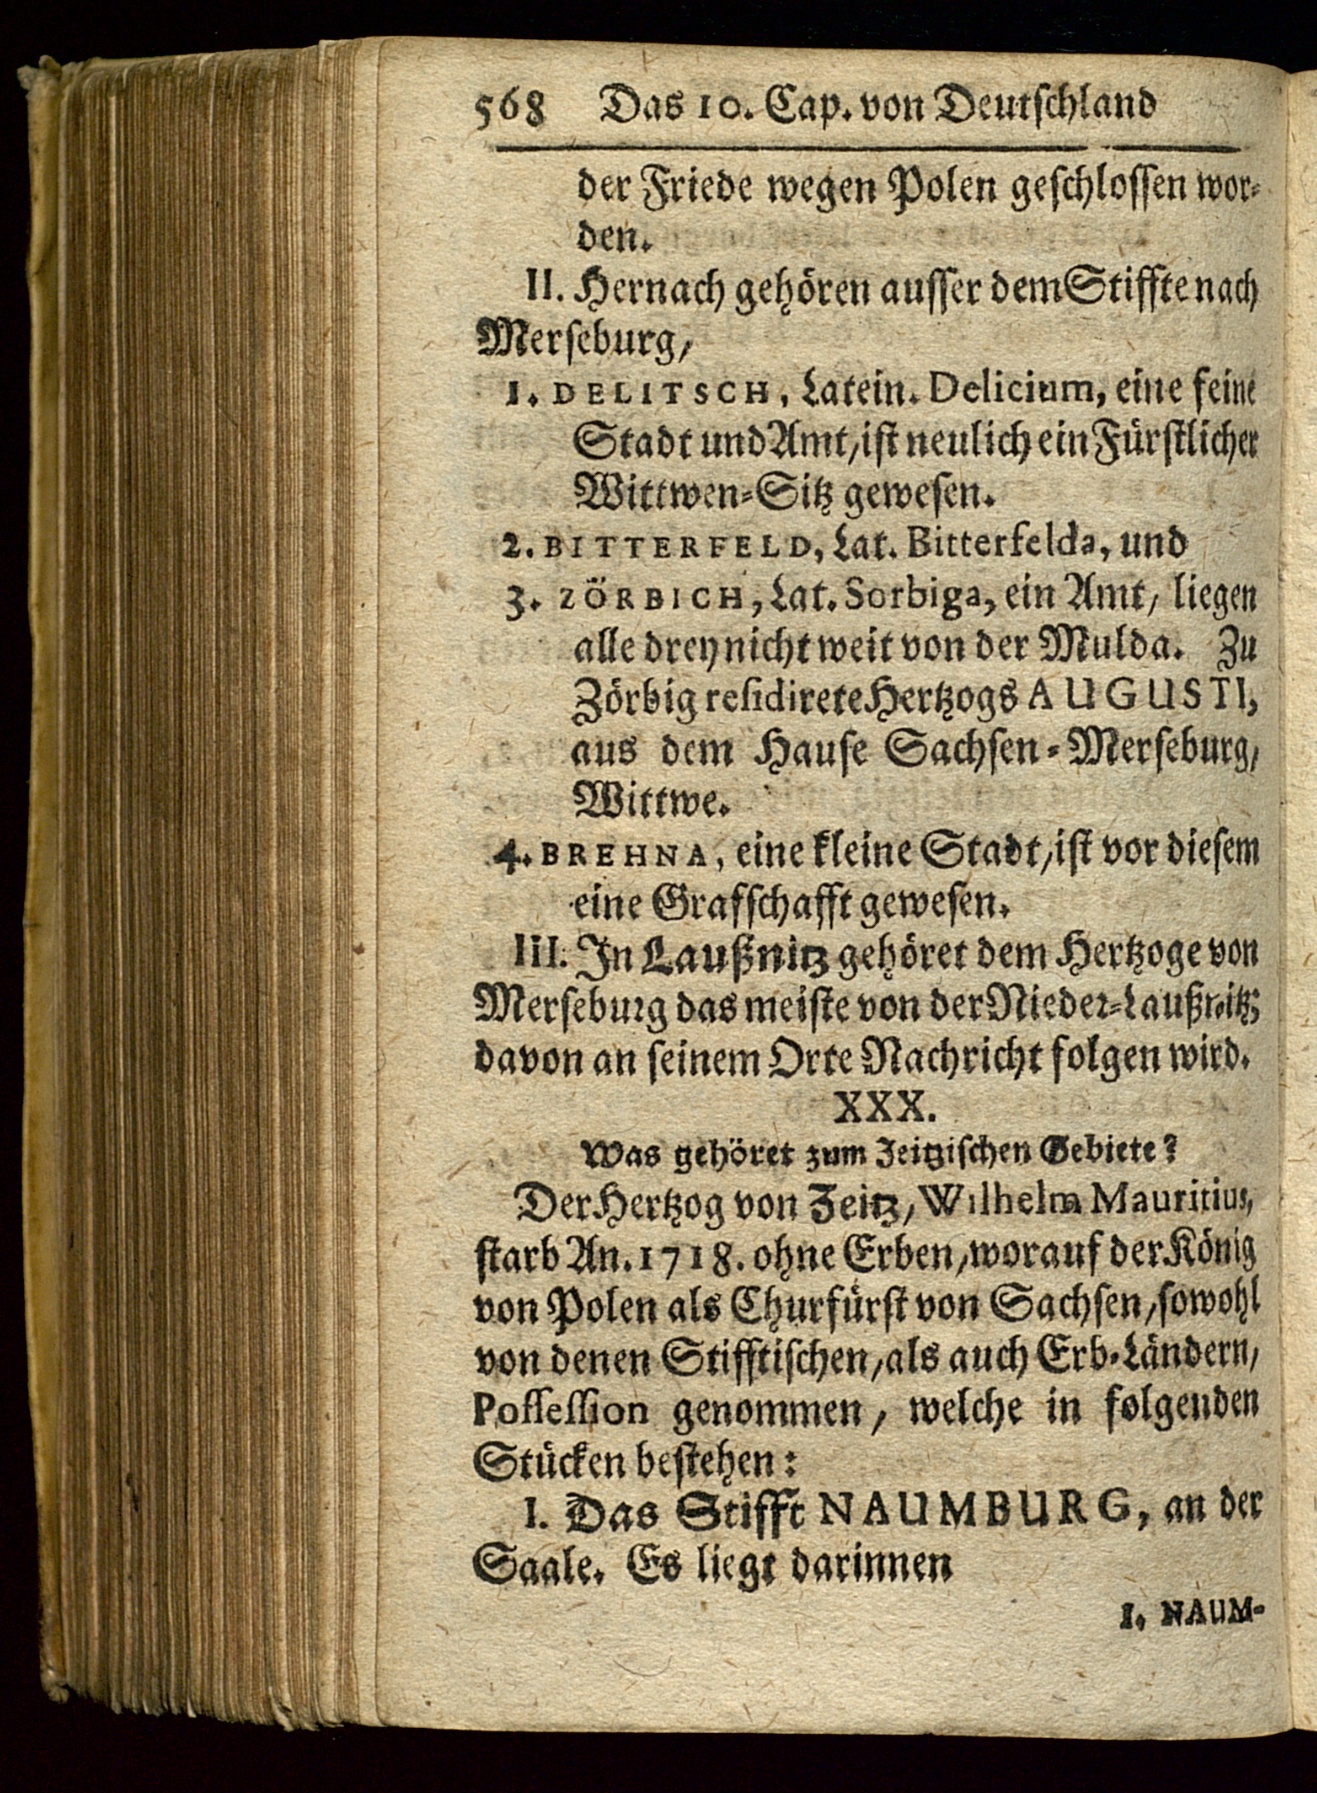 568 Das 10. Cap. von Deutschland
der Friede wegen Polen geschlossen wor-
den.
II. Hernach gehören ausser dem Stiffte nach
Merseburg,
1. DELITSCH, Latein. Delicium, eine feine
Stadt und Amt, ist neulich ein Fürstlicher
Wittwen-Sitz gewesen.
2. BITTERFELD, Lat. Bitterfelda, und
3. ZÖRBICH, Lat. Sorbiga, ein Amt, liegen
alle drey nicht weit von der Mulda. Zu
Zörbig residirete Hertzogs AUGUSTI,
aus dem Hause Sachsen-Merseburg,
Wittwe.
4. BREHNA, eine kleine Stadt, ist vor diesem
eine Grafschafft gewesen.
III. In Laußnitz gehöret dem Hertzoge von
Merseburg das meiste von der Nieder-Laußnitz;
davon an seinem Orte Nachricht folgen wird.
XXX.
Was gehöret zum Zeitzischen Gebiete?
Der Hertzog von Zeitz, Wilhelm Mauritius,
starb An. 1718. ohne Erben, worauf der König
von Polen als Churfürst von Sachsen, sowohl
von denen Stifftischen, als auch Erb-Ländern,
Possession genommen, welche in folgenden
Stücken bestehen:
I. Das Stifft NAUMBURG, an der
Saale. Es liegt darinnen
1. NAUM-